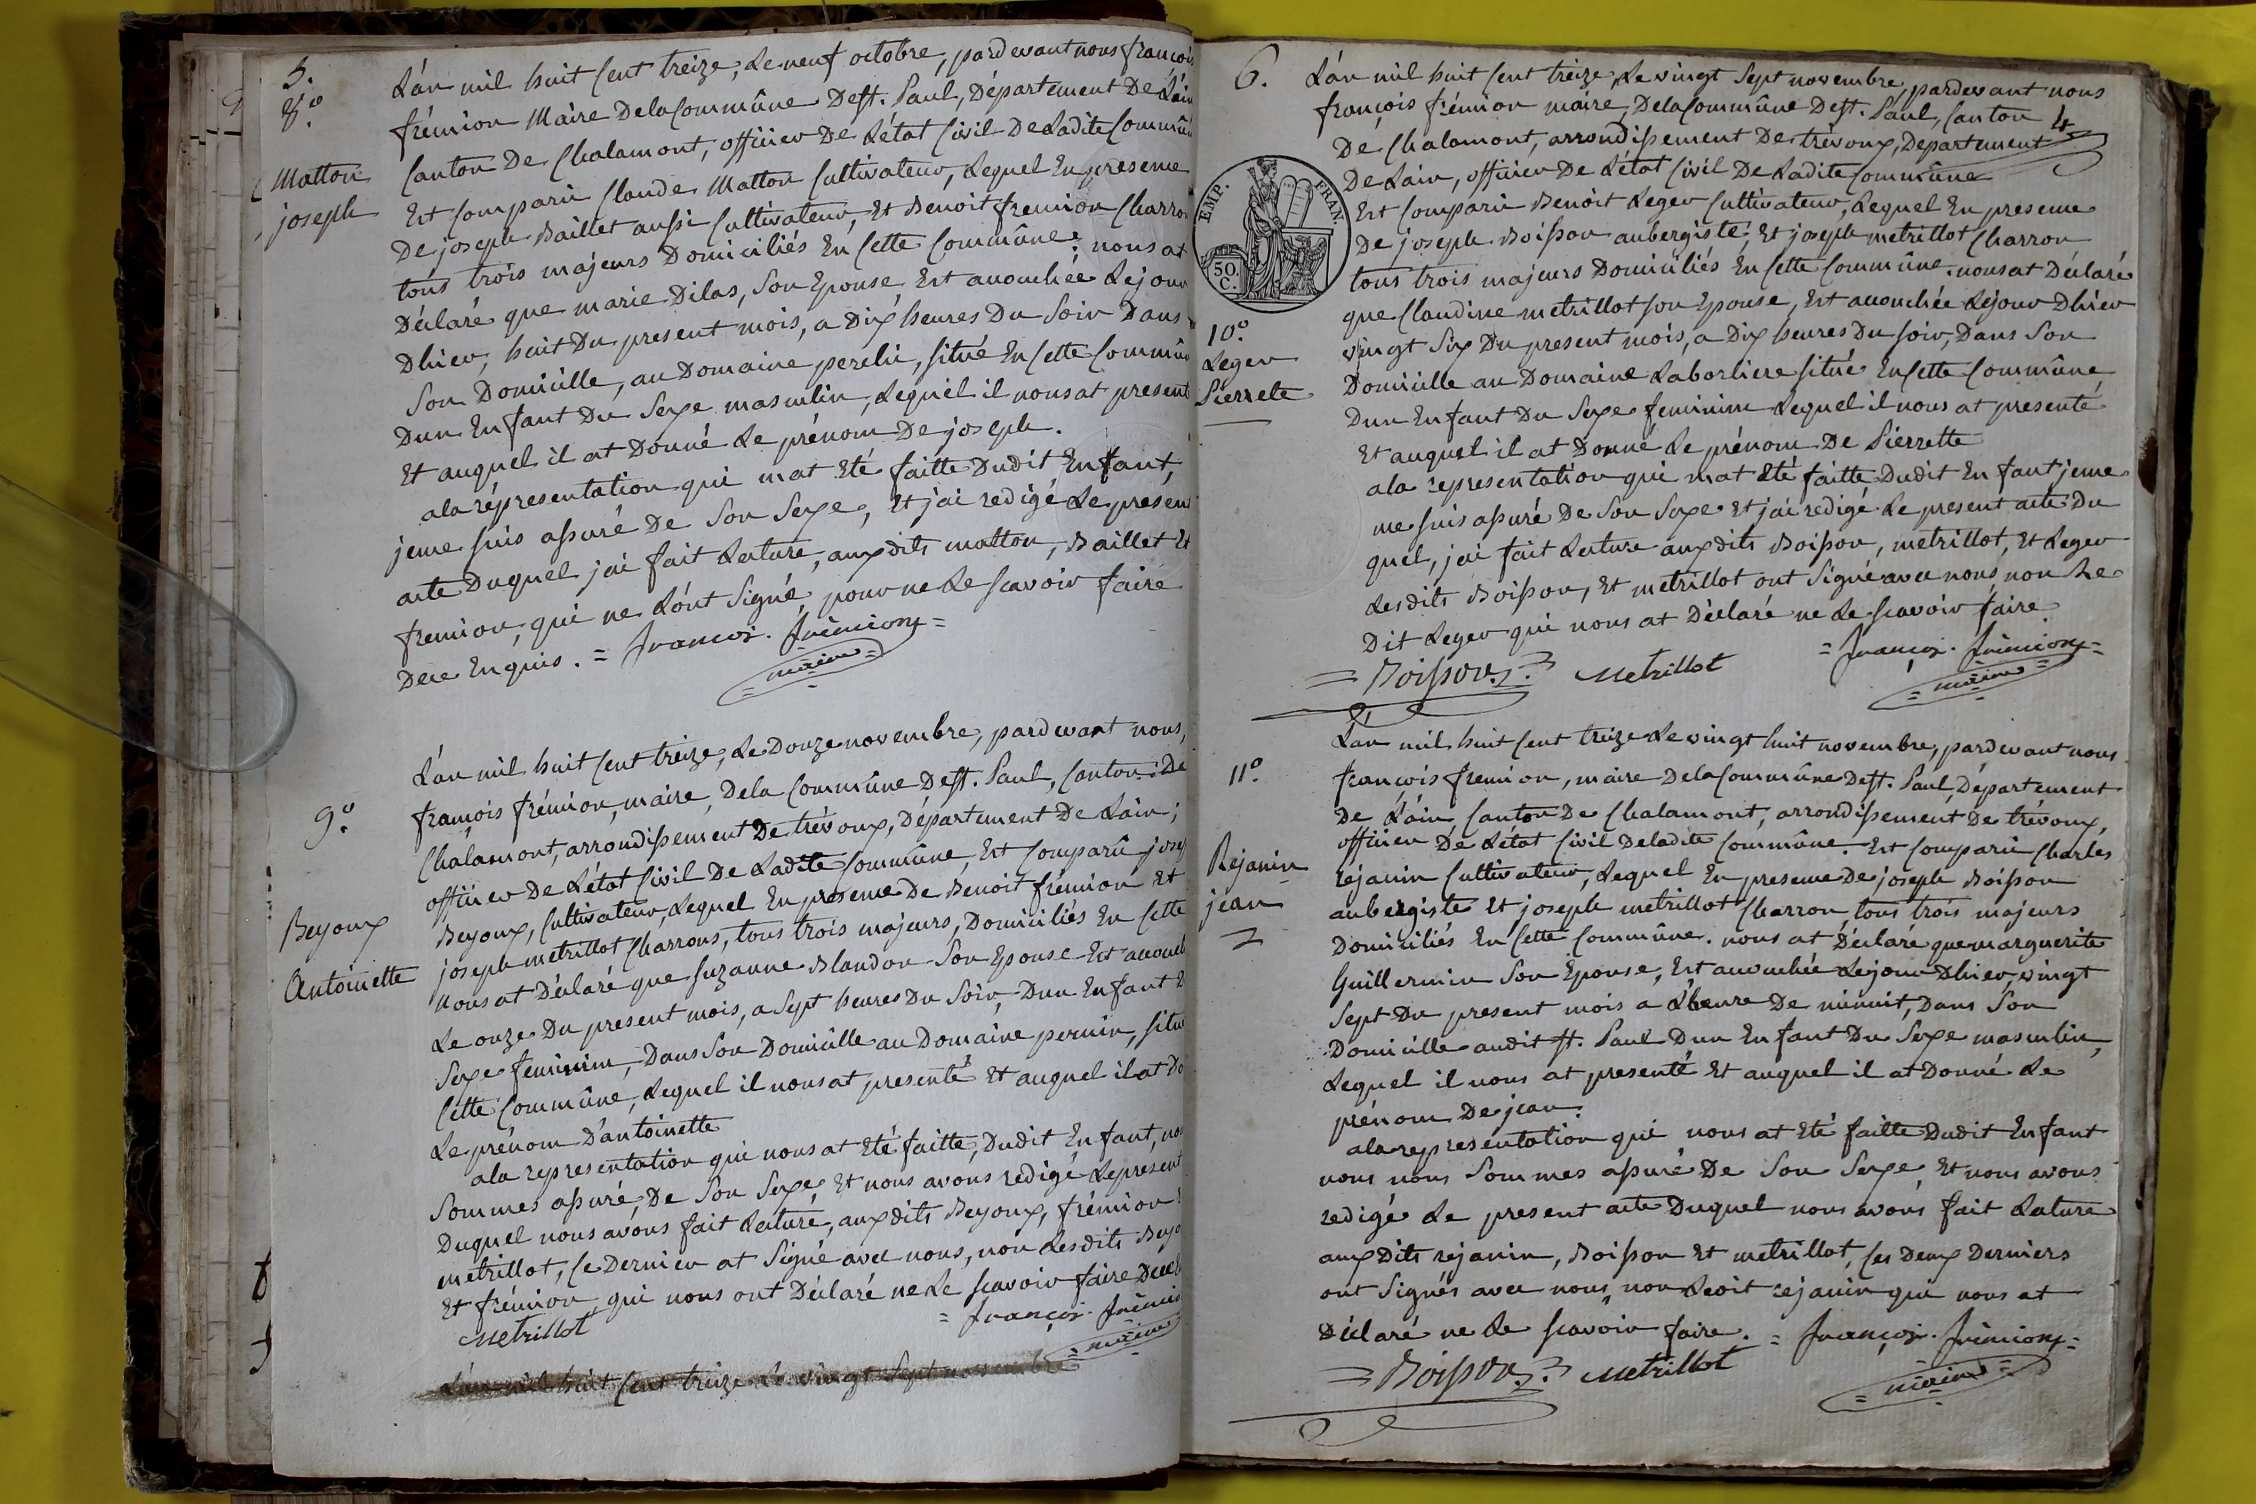 5.
8.º
Matton
joseph
L'an mil huit Cent treize, Le neuf octobre, pardevant nous françois
frémion Maire De la Commûne De st. Paul, Département De L'ain
Canton De Chalamont, officier De L'état Civil De Ladite Commûne
Est Comparû Claude Matton Cultivateur, Lequel En presence
De joseph Baillet aussi Cultivateur, Et Benoit fremion Charron
tous trois majeurs Domiciliés En Cette Commûne. nous at
Déclaré que marie Dilas, Son Epouse, Est accouchée Le jour
Dhier, huit Du present mois, a Dix heures Du Soir Dans
Son Domicille, au Domaine perelie, situé En Cette Commûne
Dun Enfant Du Sexe masculin, Lequel il nous at present
Et auquel il at Donné Le prénom De joseph.
a la répresentation qui mat Eté faitte Dudit Enfant,
je me suis assuré De Son Sexe, Et j'ai redigé Le present
acte Duquel jai fait Lecture, aux dits matton, Baillet Et
fremion, qui ne L'ont Signé, pour ne Le scavoir faire
De ce Enquis. = françois. frémion =
= maire =
9.º
Beyoux
Antoinette
L'an mil huit Cent treize, Le Douze novembre, pardevant nous,
françois frémion, maire, De la Commûne De st. Paul, Canton De
Chalamont, arrondissement De trévoux, Département De Lain,
officier De L'état Civil De Ladite Commûne, Est Comparû josep
Beyoux, Cultivateur, Lequel En presence De Benoit frémion Et
joseph metrillot Charrons, tous trois majeurs, Domiciliés En Cette
nous at Déclaré que Suzanne Blandon Son Epouse Est accouch
Le onze Du present mois, a Sept heures Du Soir, Dun Enfant D
Sexe feminim, Dans Son Domicille au Domaine pernin, situé
Cette Commûne, Lequel il nous at presenté Et auquel il at Do
Le prénom D'antoinette
a la representation qui nous at Eté faitte, Dudit Enfant, no
Sommes assuré, De Son Sexe, Et nous avons redigé Le present
Duquel nous avons fait Lecture, aux dits Beyoux, frémion
metrillot, Ce Dernier at Signé avec nous, non Lesdits Beyo
Et frémion, qui nous ont Déclaré ne Le scavoir faire
Metrillot = françois. frémion
= maire
L'an mil huit Cent treize Le vingt Sept novembre
6.
L'an mil huit Cent treize, Le vingt Sept novembre, pardevant nous
françois frémion maire, De la Commûne De st. Paul, Canton
De Chalamont, arrondissement De trévoux, Departement
De Lain, officier De L'état Civil De Ladite Commûne
Est Comparû Benoit Leger Cultivateur, Lequel En presence
De joseph Boisson aubergiste, Et joseph metrillot Charron
tous trois majeurs Domiciliés En Cette Commûne. nous at Déclaré
que Claudine metrillot Son Epouse, Est accouchée Le jour Dhier
vingt Six Du present mois, a Dix heures Du soir, Dans Son
Domicille au Domaine Laborliere situé En Cette Commûne
Dun Enfant Du Sexe feminim Lequel il nous at presenté
Et auquel il at Donné Le prénom De Pierrette
a la representation qui mat Eté faitte Dudit Enfant jeme
me suis assuré De Son Sexe Et jai redigé Le present acte Du
quel, jai fait Lecture aux dits Boisson, metrillot, Et Leger
Lesdits Boisson, Et metrillot ont Signé avec nous non Le
Dit Leger qui nous at Déclaré ne Le scavoir faire
= Boisson. Metrillot = françois. frémion =
= maire =
EMP. FRAN.
50.
C.
10.º
Leger
Pierrete
4
11.º
Rejanin
jean
L'an mil huit Cent treize Le vingt huit novembre, pardevant nous
françois fremion, maire De la Commûne De st. Paul, Département
De L'ain Canton De Chalamont, arrondissement De trévoux,
officier De L'état Civil De ladite Commûne. Est Comparû Charles
rejanin Cultivateur, Lequel En presence De joseph Boisson
aubergiste Et joseph metrillot Charron, tous trois majeurs
Domiciliés En Cette Commûne. nous at Déclaré que marguerite
Guillermin Son Epouse, Est accouchée Le jour Dhier, vingt
Sept Du present mois a L'heure De minuit, Dans Son
Domicille audit st. Paul Dun Enfant Du Sexe masculin,
Lequel il nous at presenté Et auquel il at Donné Le
prénom De jean.
a la representation qui nous at Eté faitte Dudit Enfant
nous nous Sommes assuré De Son Sexe, Et nous avons
redigé Le present acte Duquel nous avons fait Lecture
aux Dits rejanin, Boisson Et metrillot, Ces Deux Derniers
ont Signés avec nous, non Ledit rejanin qui nous at
Déclaré ne Le scavoir faire. = françois. frémion =
= Boisson. Metrillot
= maire =